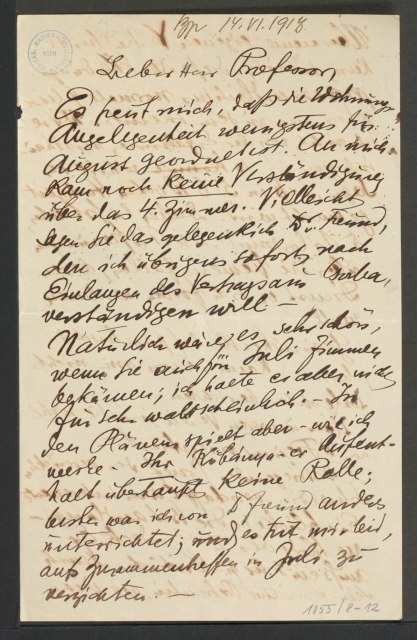 Bp 14.VI.1918
Lieber Herr Professor,
Es freut mich, daß die Wohnungs-
Angelegenheit wenigstens für
August geordnet ist. An mich
kam noch keine Verständigung
über das 4. Zimmer. Vielleicht
sagen Sie das gelegentlich Dr. Freund,
den ich übrigens sofort nach
Einlangen des Vertrags aus Csorba,
verständigen will —
Natürlich wäre es sehr schön,
wenn Sie auch für Juli Zimmer
bekämen; ich halte es aber nicht
für sehr wahrscheinlich. — In
den Plänen spielt aber – wie ich
merke – Ihr Aufent-
halt überhaupt keine Rolle;
bisher war ich von Dr Freund anders
unterrichtet; und es tut mir leid,
aufs Zusammentreffen in Juli zu
verzichten. —
1055/8-12